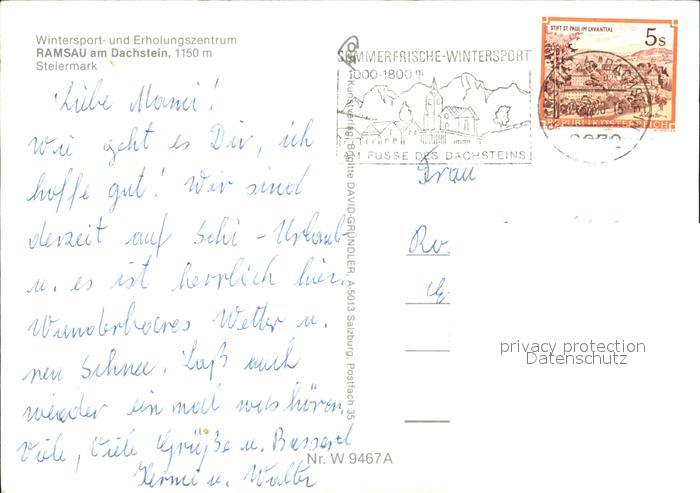 Wintersport- und Erholungszentrum
RAMSAU am Dachstein, 1150 m
Steiermark
Liebe Mami!
wie geht es Dir, ich
hoffe gut! Wir sind
derzeit auf Schi-Urlaub
u. es ist herrlich hier.
Wunderbares Wetter u.
neu Schnee. Laß auch
wieder ein mal was hören
Viele, Viele Grüße u. Busserl
Hermi u. Walter
SOMMERFRISCHE-WINTERSPORT
1000-1800 m
AM FUSSE DES DACHSTEINS
STIFT ST. PAUL IM LAVANTTAL
5s
REPUBLIK ÖSTERREICH
Kunstverlag Brigitte DAVID-GRÜNDLER, A-5013 Salzburg, Postfach 35
Frau
Ro.
privacy protection
Datenschutz
Nr. W 9467A